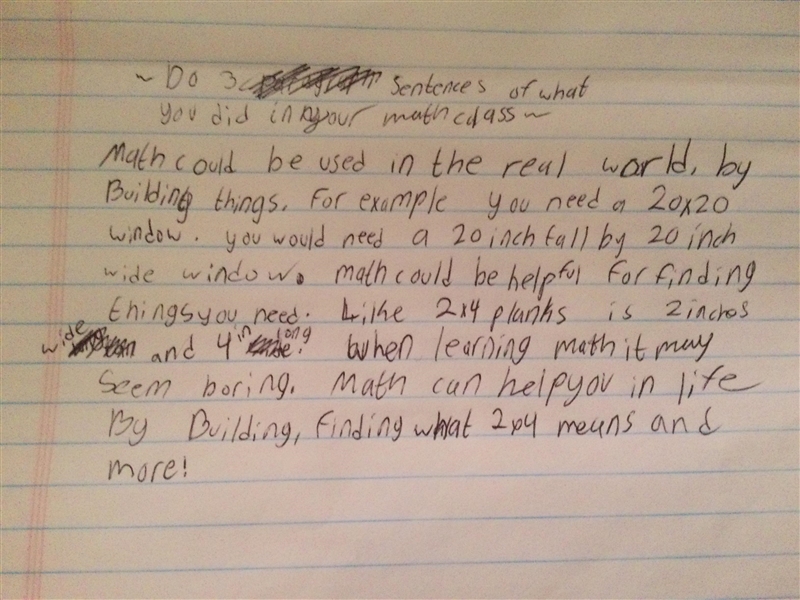 ~ Do 3 sentences of what
you did in your math class ~
Math could be used in the real world, by
Building things. For example you need a 20x20
window. you would need a 20 inch tall by 20 inch
wide window. math could be helpful for finding
things you need. Like 2x4 planks is 2 inches
wide and 4 in long! When learning math it may
Seem boring. Math can help you in life
By Building, finding what 2x4 means and
more!